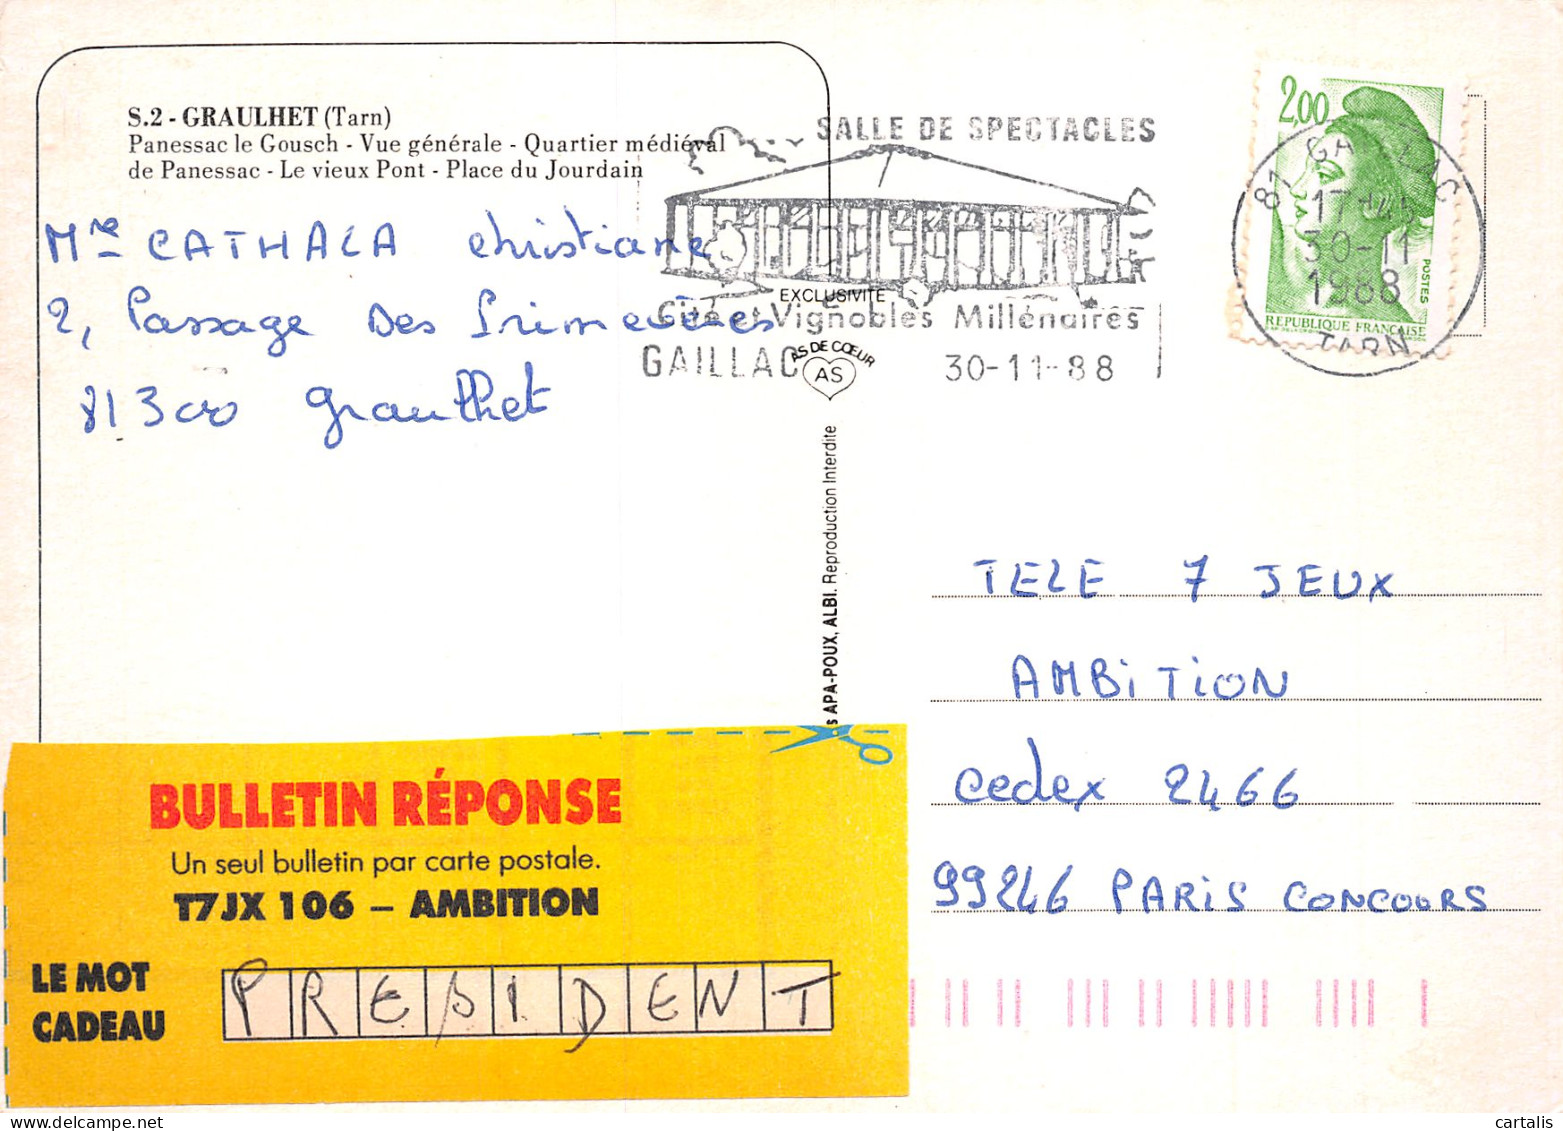 S.2 - GRAULHET (Tarn)
Panessac le Gousch - Vue générale - Quartier médiéval
de Panessac - Le vieux Pont - Place du Jourdain
Mme CATHALA Christiane
2, Passage Des Primevères
81300 Graulhet
SALLE DE SPECTACLES
Cité et Vignobles Millénaires
GAILLAC 30-11-88
EXCLUSIVITE
AS DE CŒUR
AS
2,00
POSTES
REPUBLIQUE FRANÇAISE
81 GAILLAC
17H45
30-11
1988
TARN
s APA-POUX, ALBI. Reproduction Interdite
TELE 7 JEUX
AMBITION
Cedex 2466
99246 PARIS CONCOURS
BULLETIN RÉPONSE
Un seul bulletin par carte postale.
T7JX 106 – AMBITION
LE MOT
CADEAU
PRESIDENT
cartalis